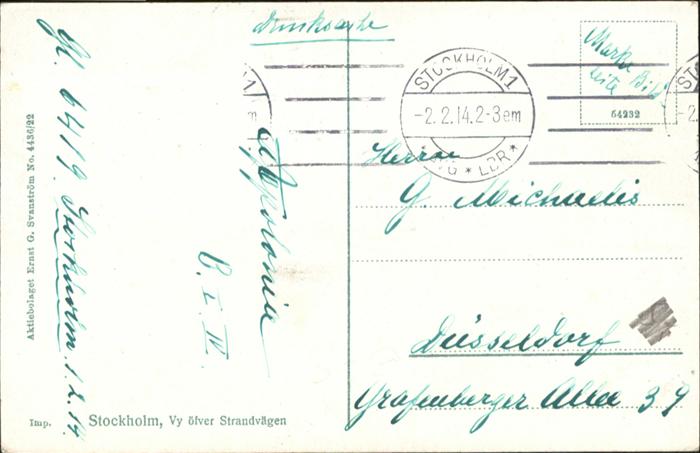 Drucksache
Marke Bild
seite
64232
STOCKHOLM 1
-2.2.14.2-3em
AVG * LBR *
Herrn
G. Michaelis
Düsseldorf
Grafenberger Allee 39
Apolonia
B. I. IV.
6419 Stockholm 1.2.14.
Aktiebolaget Ernst G. Svanström No. 4436/22
Imp. Stockholm, Vy öfver Strandvägen